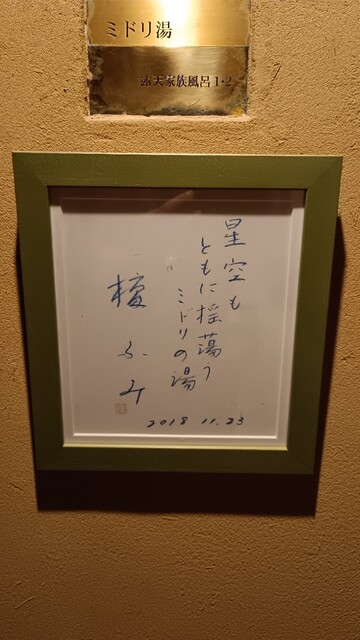 ミドリ湯
露天家族風呂1・2
星空も
ともに揺蕩う
ミドリの湯
檀ふみ
2018 11.23